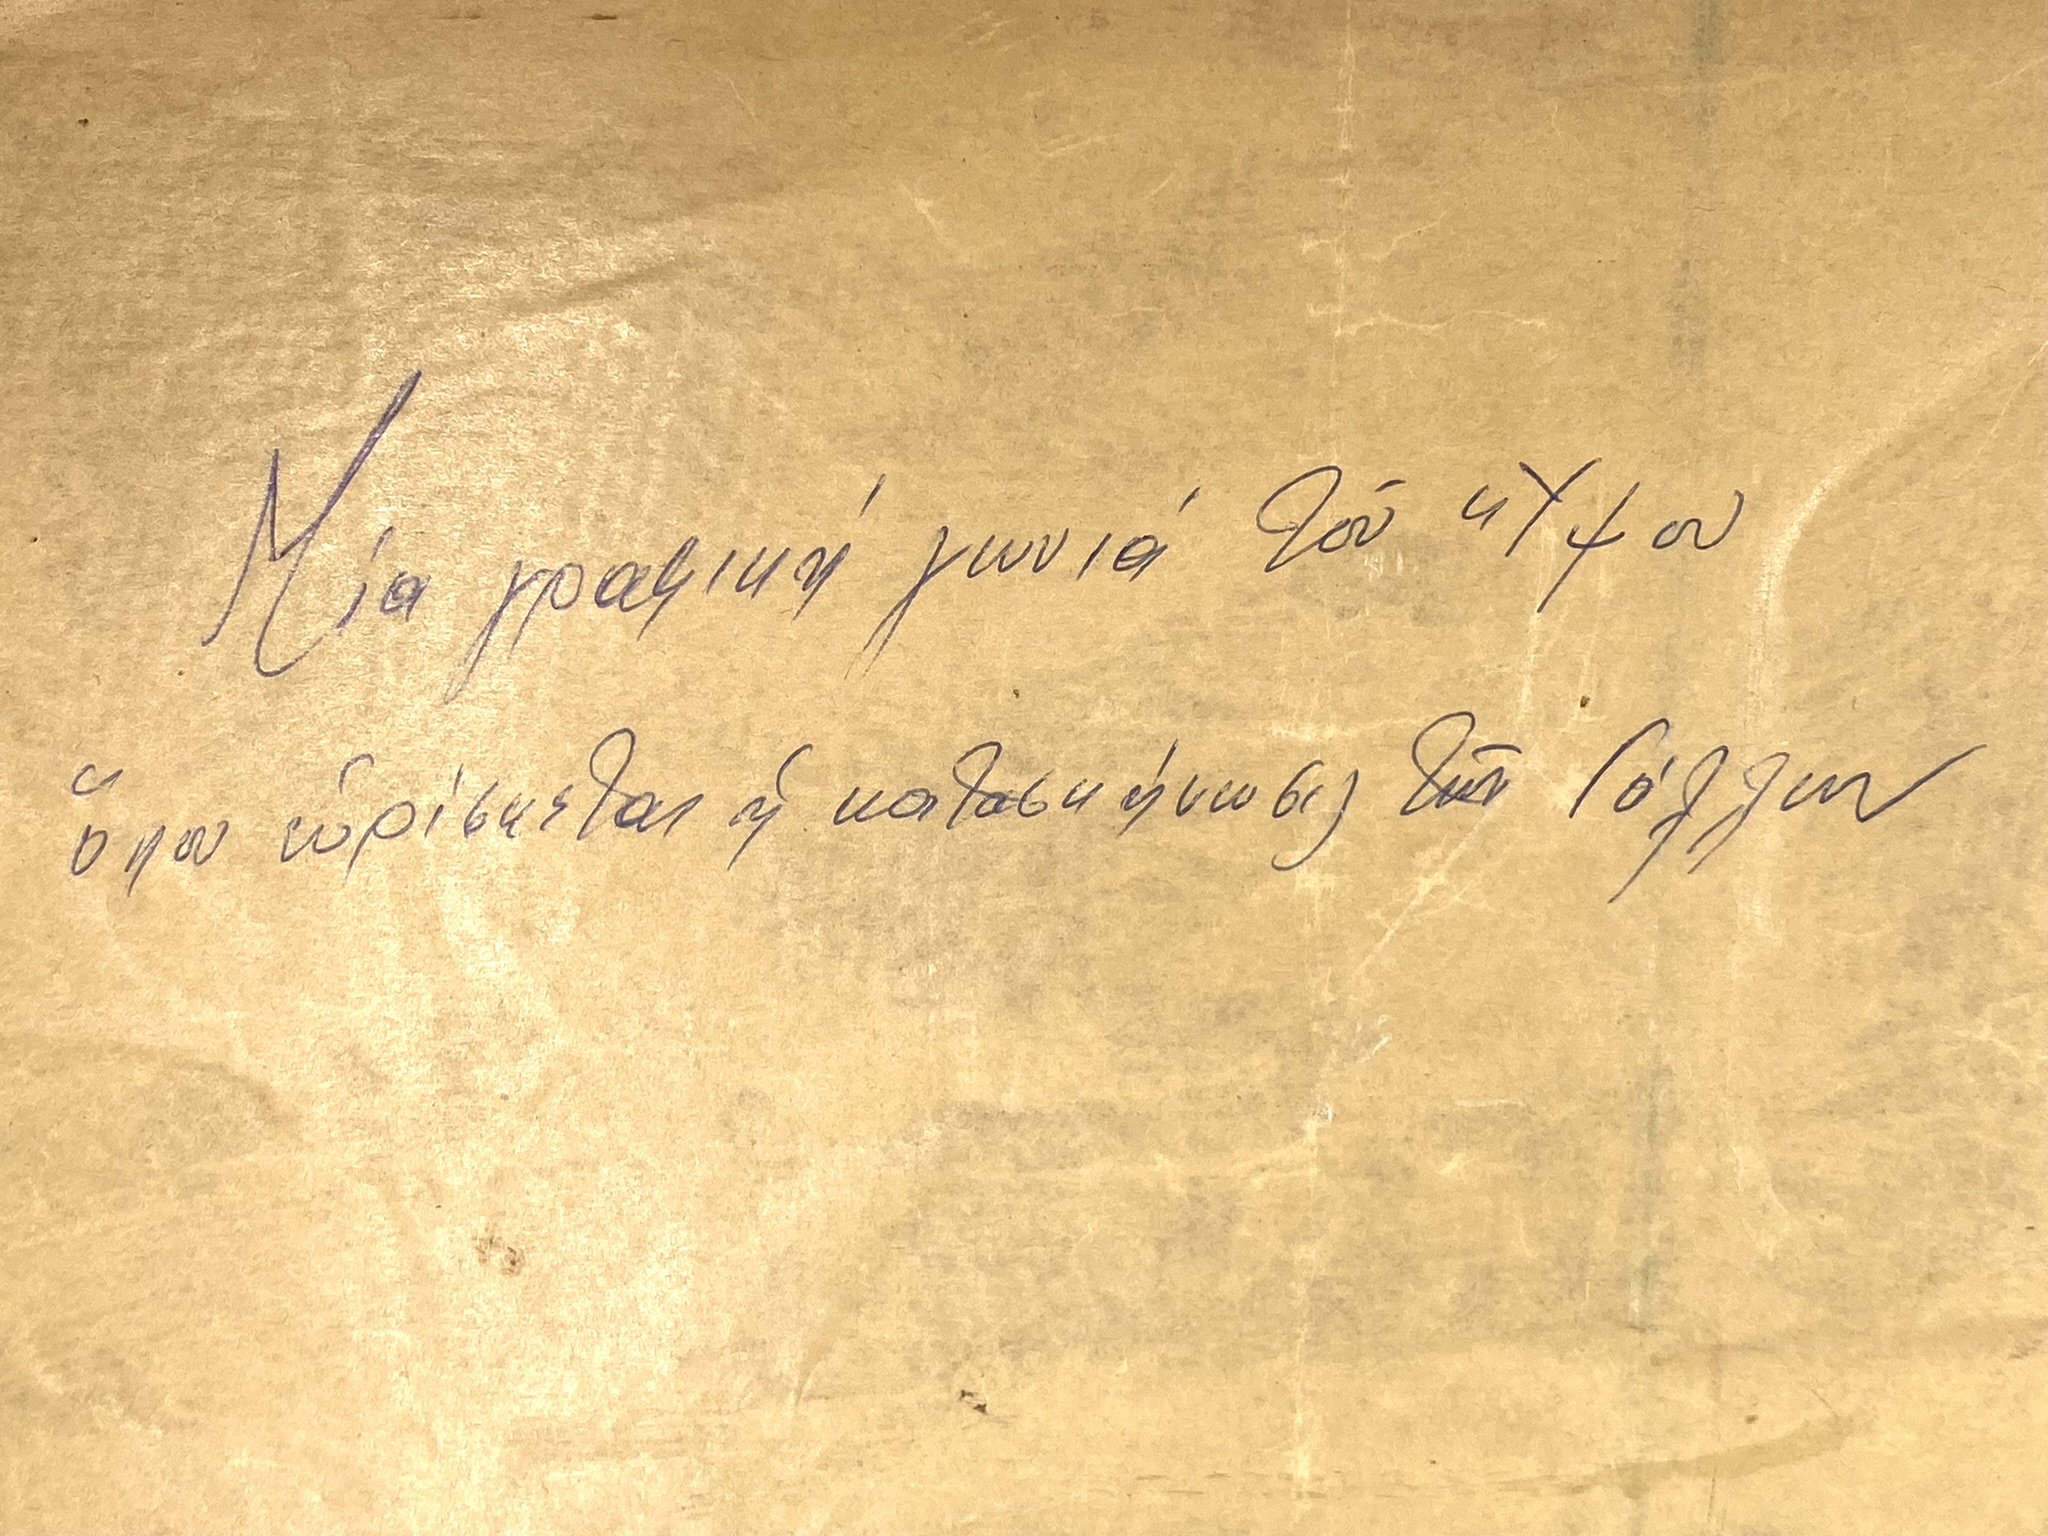 Μία γραφική γωνιά τοῦ Ὕψου
ὅπου εὑρίσκεται ἡ κατασκήνωσις τῶν Γάλλων